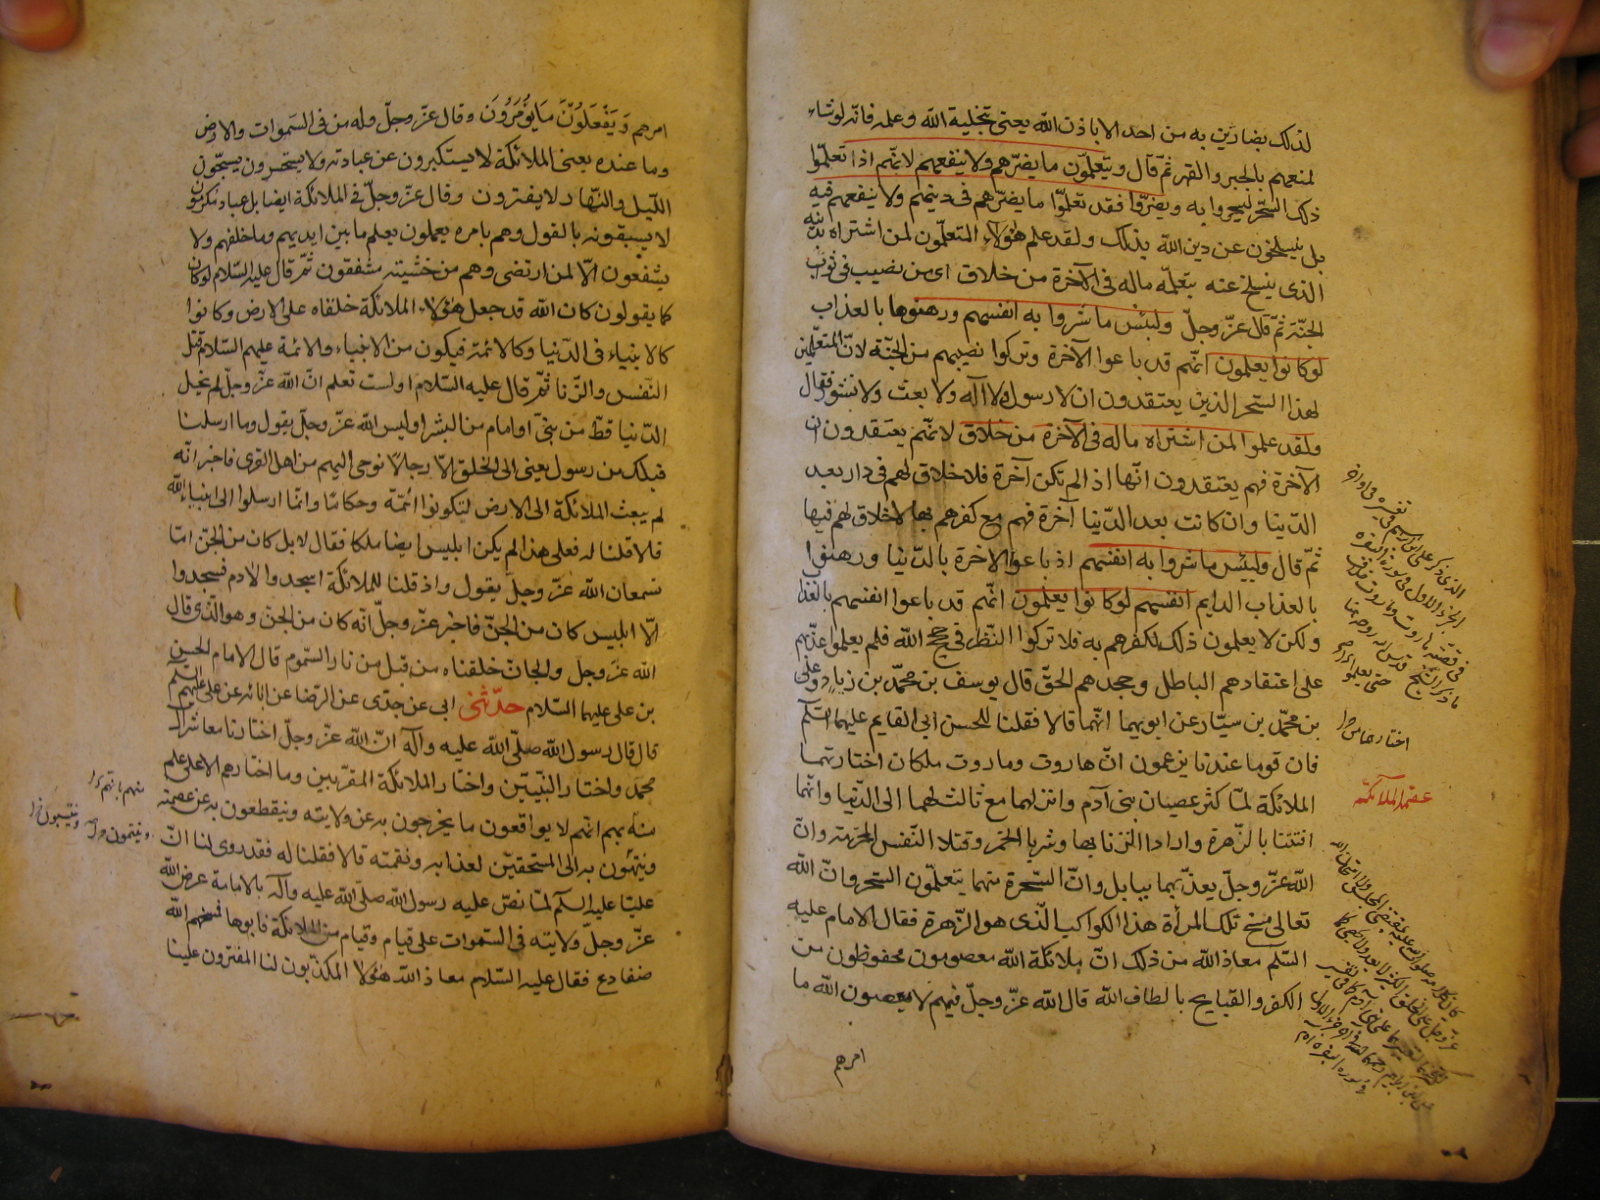 لذلك بضارين به من احد الا باذن الله يعني بتخلية الله وعلمه فانه لو شاء
لمنعهم بالجبر والقهر ثم قال ويتعلمون ما يضرهم ولا ينفعهم لانهم اذا تعلموا
ذلك السحر ليسحروا به ويضروا فقد تعلموا ما يضرهم في دينهم ولا ينفعهم فيه
بل ينسلخون عن دين الله بذلك ولقد علم هؤلاء المتعلمون لمن اشتراه بدينه
الذي ينسلخ عنه بتعلمه ماله في الآخرة من خلاق اى من نصيب في ثواب
الجنة ثم قال عز وجل ولبئس ما شروا به انفسهم ورهنوها بالعذاب
لو كانوا يعلمون انهم قد باعوا الآخرة وتركوا نصيبهم من الجنة لان المتعلمين
لهذا السحر الذين يعتقدون ان لا رسول ولا اله ولا بعث ولا نشور فقال
ولقد علموا لمن اشتراه ماله في الآخرة من خلاق لانهم يعتقدون ان
الآخرة فهم يعتقدون انها اذا لم تكن آخرة فلا خلاق لهم في دار بعد
الدنيا وان كانت بعد الدنيا آخرة فهم مع كفرهم بها لا خلاق لهم فيها
ثم قال ولبئس ما شروا به انفسهم اذ باعوا الاخرة بالدنيا ورهنوا
بالعذاب الدايم انفسهم لو كانوا يعلمون انهم قد باعوا انفسهم بالعذاب
ولكن لا يعلمون ذلك لكفرهم به فلا تركوا النظر في حجج الله فلم يعلموا عذبهم
على اعتقادهم الباطل وجحدهم الحق قال يوسف بن محمد بن زياد وعلى
بن محمد بن سيار عن ابويهما انهما قالا فقلنا للحسن ابي القايم عليهما السلم
فان قوما عندنا يزعمون ان هاروت وماروت ملكان اختارتهما
الملائكة لما كثر عصيان بني آدم وانزلهما مع ثالث لهما الى الدنيا وانهما
افتتنا بالزهرة وارادا الزنا بها وشربا الخمر وقتلا النفس المحرمة وان
الله عز وجل يعذبهما ببابل وان السحرة منهما يتعلمون السحر وان الله
تعالى مسخ تلك المرأة هذا الكوكب الذى هو الزهرة فقال الامام عليه
السلم معاذ الله من ذلك ان ملائكة الله معصومون محفوظون من
الكفر والقبايح بالطاف الله قال الله عز وجل فيهم لا يعصون الله ما
امرهم
عصمة الملائكة
امرهم ويفعلون ما يؤمرون وقال عز وجل وله من في السموات والارض
وما عنده يعني الملائكة لا يستكبرون عن عبادته ولا يستحسرون يسبحون
الليل والنهار لا يفترون وقال عز وجل في الملائكة ايضا بل عباد مكرمون
لا يسبقونه بالقول وهم بامره يعملون يعلم ما بين ايديهم وما خلفهم ولا
يشفعون الا لمن ارتضى وهم من خشيته مشفقون ثم قال عليه السلام لو كان
كما يقولون كان الله قد جعل هؤلاء الملائكة خلفاه على الارض وكانوا
كالانبياء في الدنيا وكالائمة فيكون من الانبياء والائمة عليهم السلام قتل
النفس والزنا ثم قال عليه السلام اولست تعلم ان الله عز وجل لم يخل
الدنيا قط من نبي او امام من البشر اوليس الله عز وجل يقول وما ارسلنا
قبلك من رسول يعني الى الخلق الا رجالا نوحى اليهم من اهل القرى فاخبر انه
لم يبعث الملائكة الى الارض ليكونوا ائمة وحكاما وانما ارسلوا الى انبياء الله
قالا قلنا له فعلى هذا لم يكن ابليس ايضا ملكا فقال لا بل كان من الجن اما
تسمعان الله عز وجل يقول واذ قلنا للملائكة اسجدوا لادم فسجدوا
الا ابليس كان من الجن فاخبر عز وجل انه كان من الجن وهو الذى قال
الله عز وجل والجان خلقناه من قبل من نار السموم قال الامام الحسن
بن على عليهما السلام حدثني ابي عن جدى عن الرضا عن ابائه عن على عليهم السلم
قال قال رسول الله صلى الله عليه وآله ان الله عز وجل اختارنا معاشر آل
محمد واختار النبيين واختار الملائكة المقربين وما اختارهم الا على علم
منه بهم انهم لا يواقعون ما يخرجون به عن ولايته وينقطعون به عن عصمته
وينتهون به الى المستحقين لعذابه ونقمته قالا فقلنا له فقد روى لنا ان
عليا عليه السلم لما نص عليه رسول الله صلى الله عليه وآله بالامامة عرض الله
عز وجل ولايته في السموات على فيام وفيام من الملائكة فابوها فمسخهم الله
ضفادع فقال عليه السلام معاذ الله هؤلاء المكذبون لنا المفترون علينا